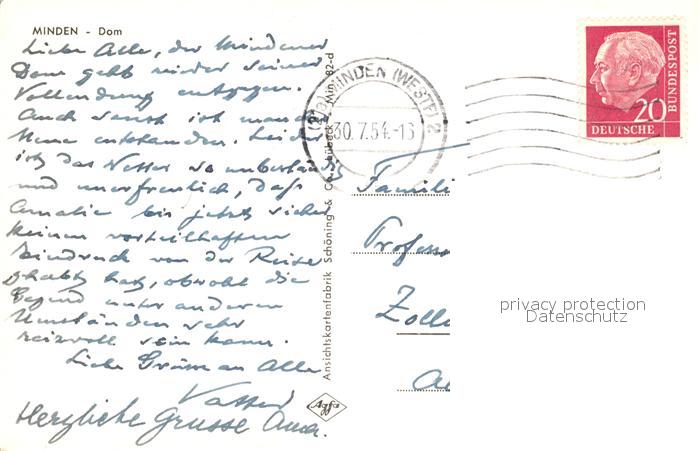 MINDEN - Dom
Liebe Alle, der Mindener
Dom geht wieder seiner
Vollendung entgegen.
Auch sonst ist manches
Neue entstanden. Leider
ist das Wetter so unbeständig
und unerfreulich, daß
Amalie bis jetzt sicher
keinen vorteilhaften
Eindruck von der Reise
gehabt hat, obwohl die
Gegend unter anderen
Umständen sehr
reizvoll sein kann.
Liebe Grüsse an Alle
Herzliche Grüsse
Ansichtskartenfabrik Schöning & Co., Lübeck Min. 82-d
Agfa
MINDEN (WESTF) 2
30.7.54.-13
20
DEUTSCHE
BUNDESPOST
Famili
Professo
Zolle
privacy protection
Datenschutz